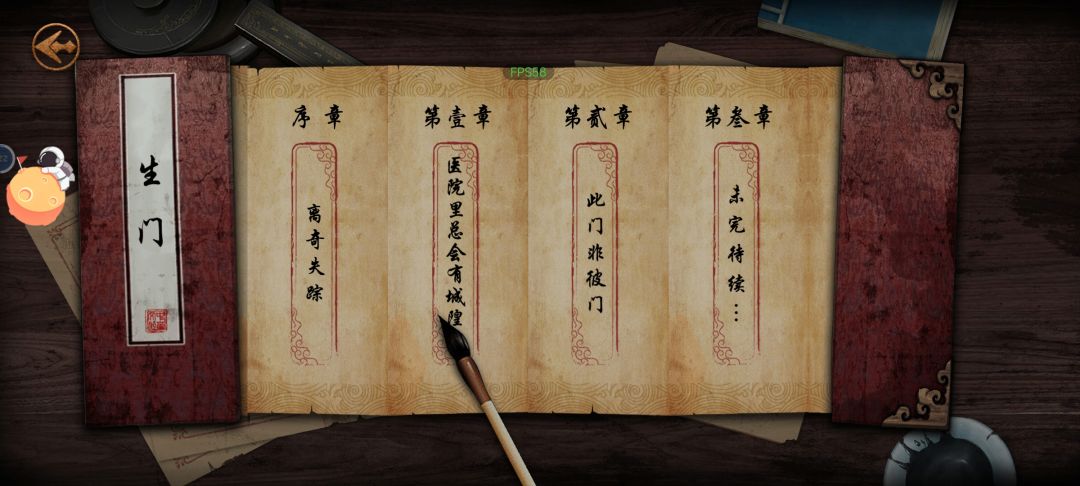 生门
FPS58
序章
离奇失踪
第壹章
医院里总会有城隍
第贰章
此门非彼门
第叁章
未完待续…